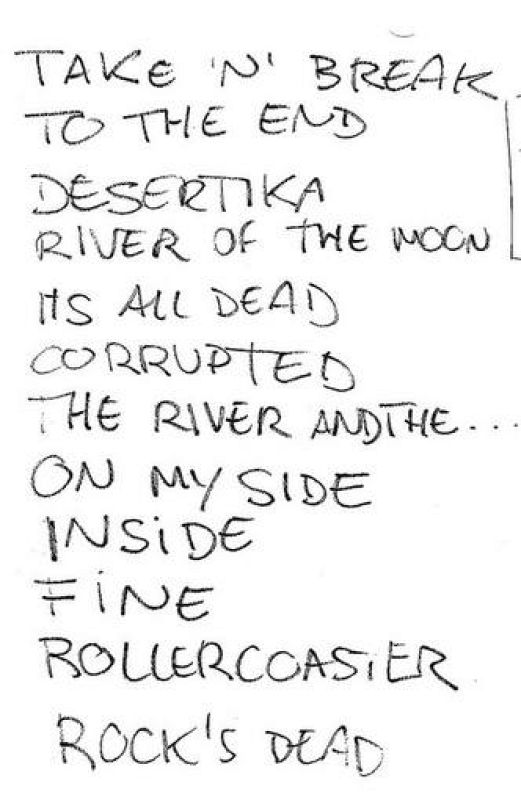 TAKE 'N' BREAK
TO THE END
DESERTIKA
RIVER OF THE MOON
ITS ALL DEAD
CORRUPTED
THE RIVER AND THE...
ON MY SIDE
INSiDE
FiNE
ROLLERCOASTER
ROCK'S DEAD